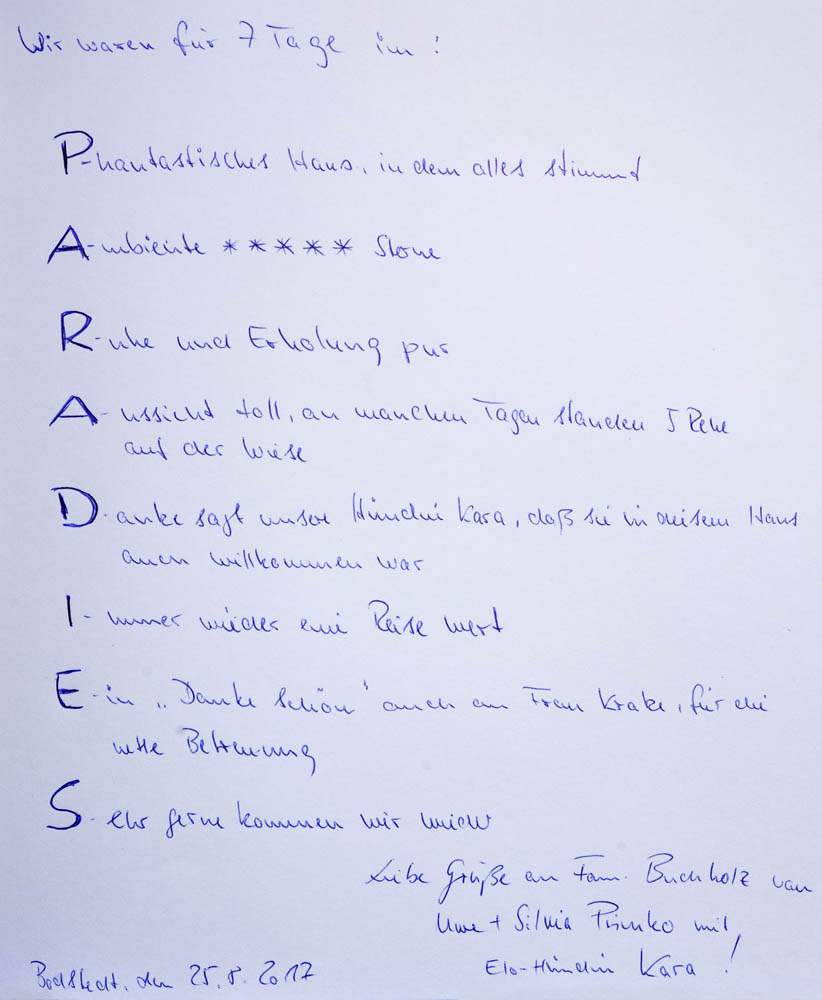 Wir waren für 7 Tage im:
P-hantastisches Haus, in dem alles stimmt
A-mbiente ***** Sterne
R-uhe und Erholung pur
A-ussicht toll, an manchen Tagen standen 5 Rehe
auf der Wiese
D-anke sagt unsere Hündin Kara, daß sie in diesem Haus
auch willkommen war
I-mmer wieder eine Reise wert
E-in „Danke schön" auch an Frau Krake, für die
nette Betreuung
S-ehr gerne kommen wir wieder
Liebe Grüße an Fam. Buchholz von
Uwe + Silvia mit
Elo-Hündin Kara!
Bodstedt, den 25.8.2017